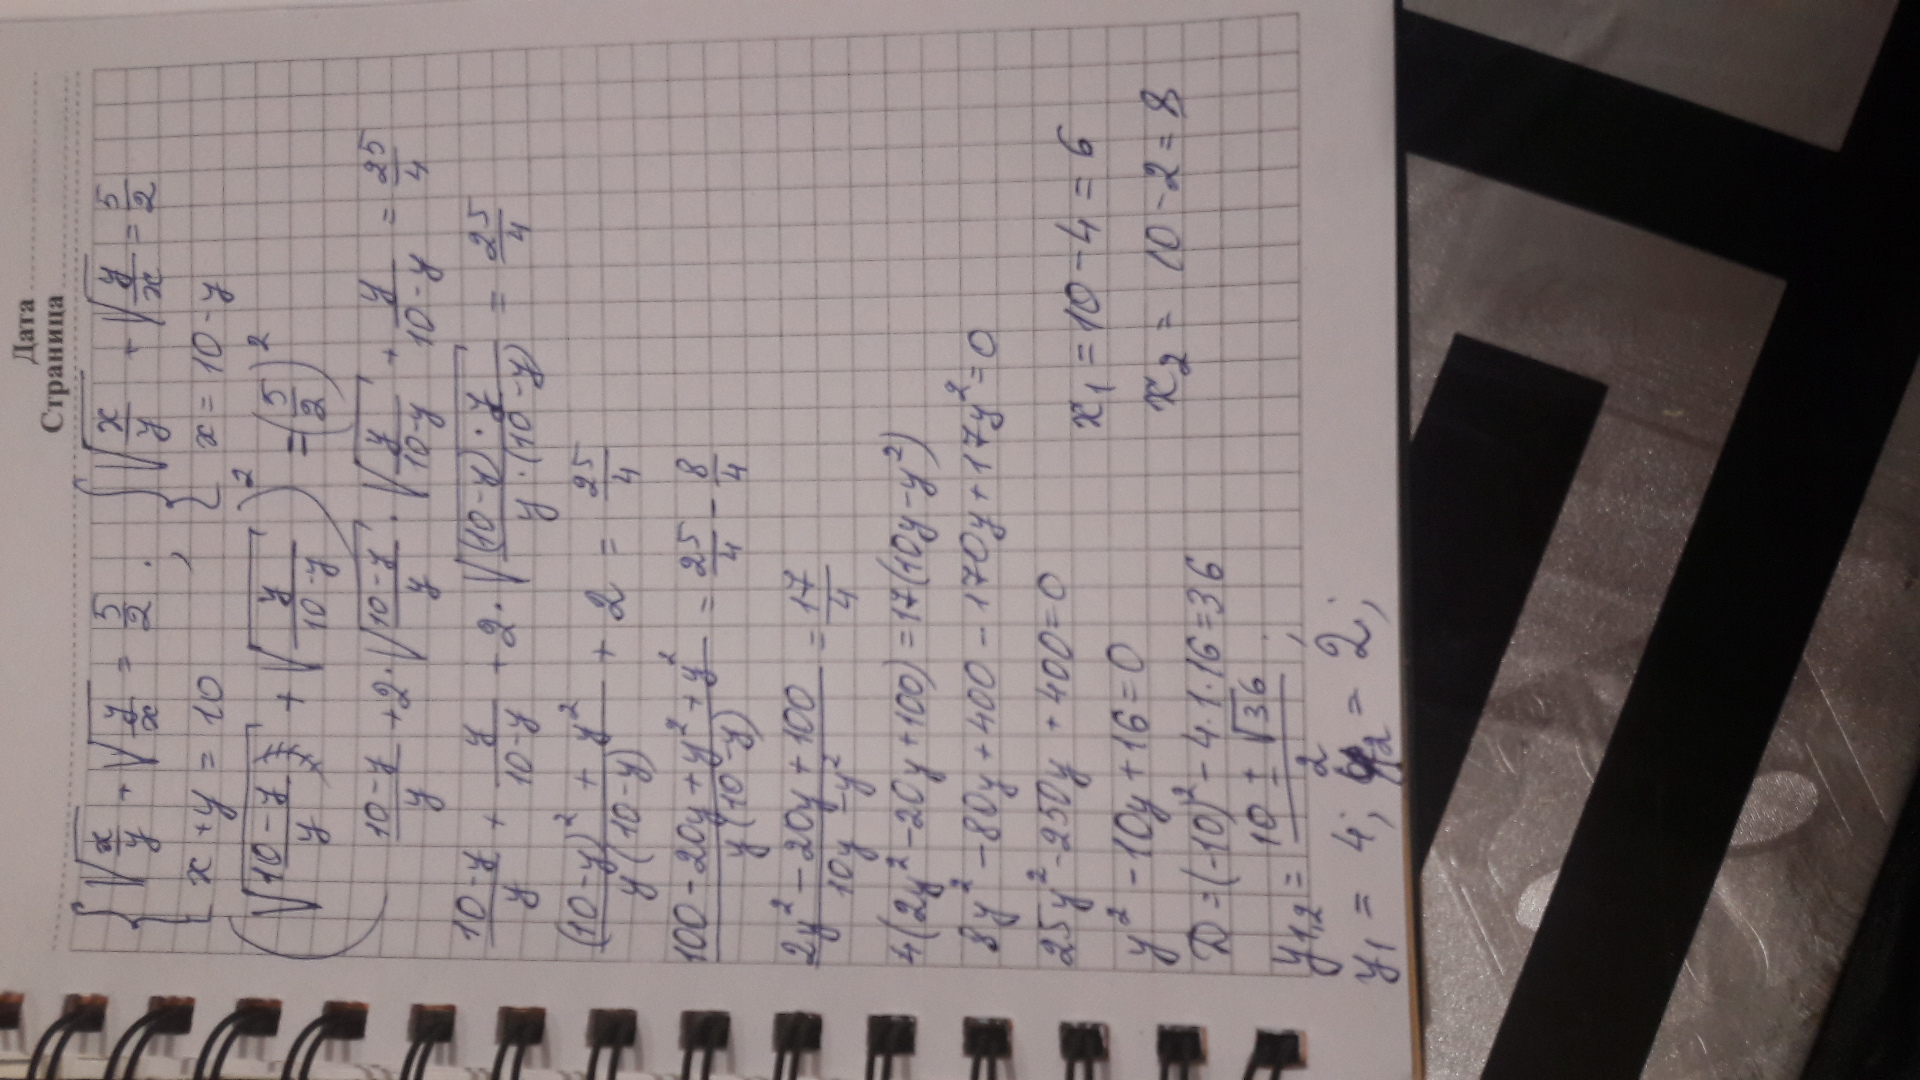 Дата
Страница
{ √(x/y) + √(y/x) = 5/2 . { √(x/y) + √(y/x) = 5/2
x + y = 10 , x = 10 - y
(√((10-y)/y) + √(y/(10-y)))² = (5/2)²
(10-y)/y + 2·√((10-y)/y) · √(y/(10-y)) + y/(10-y) = 25/4
(10-y)/y + y/(10-y) + 2·√(((10-y)·y)/(y·(10-y))) = 25/4
((10-y)² + y²)/(y(10-y)) + 2 = 25/4
(100-20y+y²+y²)/(y(10-y)) = 25/4 - 8/4
(2y²-20y+100)/(10y-y²) = 17/4
4(2y²-20y+100) = 17(10y-y²)
8y²-80y+400-170y+17y²=0
25y²-250y+400=0
y²-10y+16=0
D=(-10)²-4·1·16=36
y1,2 = (10±√36)/2 ;
y1 = 4; y2 = 2;
x1 = 10-4 = 6
x2 = 10-2 = 8